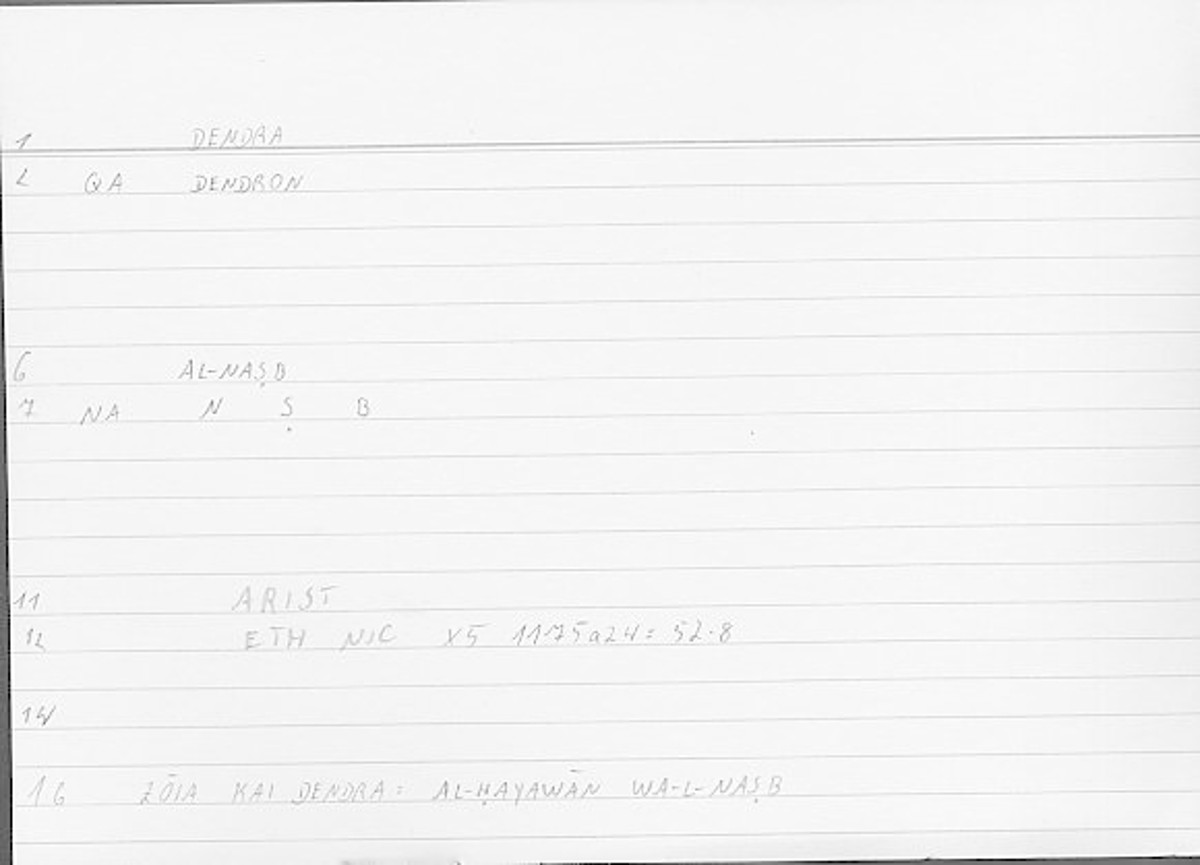 1 DENDRA
2 QA DENDRON
6 AL-NAṢB
7 NA N Ṣ B
11 ARIST
12 ETH NIC X5 1175a24: 52.8
14
16 ZŌIA KAI DENDRA: AL-ḤAYAWĀN WA-L-NAṢB